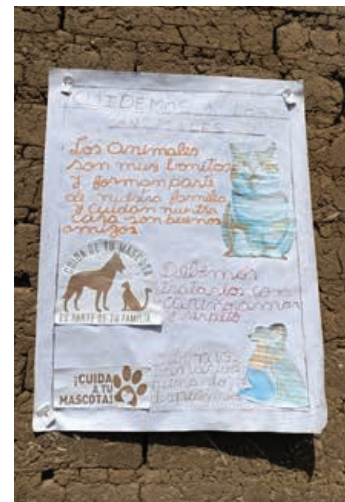 CUIDEMOS A LOS
ANIMALES
Los Animales
son muy bonitos
y forman parte
de nuestra familia
y cuidan nuestra
casa son buenos
amigos
CUIDA DE TU MASCOTA
ES PARTE DE TU FAMILIA
Debemos
tratarlos con
cariño, amor
y respeto
¡CUIDA
A TU
MASCOTA!